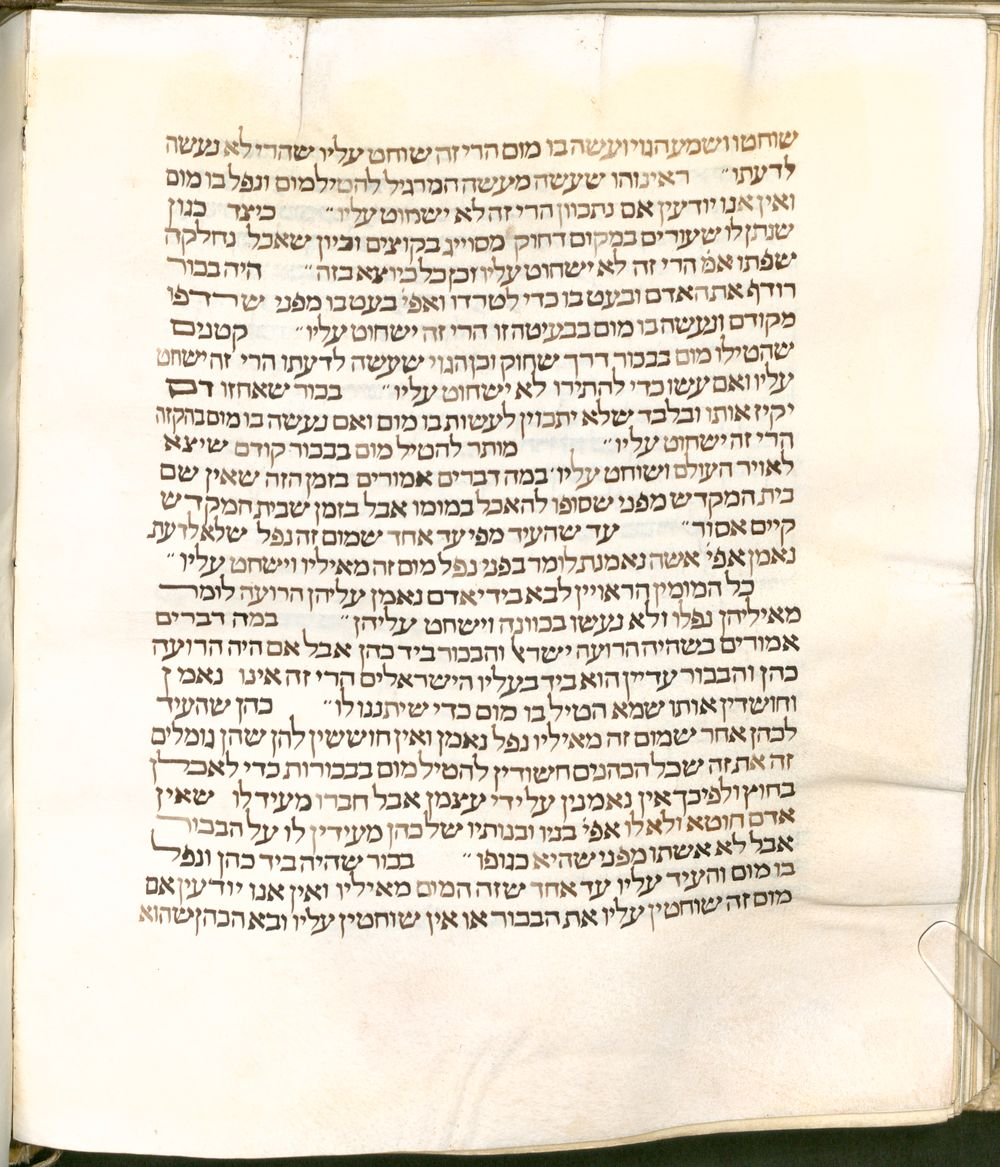 שוחטו ושמע הגוי ועשה בו מום הרי זה שוחט עליו שהרי לא נעשה
לדעתו״ ראינוהו שעשה מעשה המרגיל להטיל מום ונפל בו מום
ואין אנו יודעין אם נתכוון הרי זה לא ישחוט עליו״ כיצד כגון
שנתן לו שעורים במקום דחוק מסוייג בקוצים וכיון שאכל נחלקה
שפתו אפ׳ הרי זה לא ישחוט עליו וכן כל כיוצא בזה״ היה בכור
רודף את האדם ובעט בו כדי לטרדו ואפי׳ בעט בו מפני שרדפו
מקודם ונעשה בו מום בבעיטה זו הרי זה ישחוט עליו״ קטנים
שהטילו מום בבכור דרך שחוק וכן הגוי שעשה לדעתו הרי זה ישחט
עליו ואם עשו כדי להתירו לא ישחוט עליו״ בכור שאחזו דם
יקיז אותו ובלבד שלא יתכוין לעשות בו מום ואם נעשה בו מום בהקזה
הרי זה ישחוט עליו״ מותר להטיל מום בבכור קודם שיצא
לאויר העולם ושוחט עליו׳ במה דברים אמורים בזמן הזה שאין שם
בית המקדש מפני שסופו להאכל במומו אבל בזמן שבית המקדש
קיים אסור״ עד שהעיד מפי עד אחד שמום זה נפל שלא לדעת
נאמן אפי׳ אשה נאמנת לומר בפני נפל מום זה מאיליו וישחט עליו״
כל המומין הראויין לבא בידי אדם נאמן עליהן הרועה לומר
מאיליהן נפלו ולא נעשו בכוונה וישחט עליהן״ במה דברים
אמורים בשהיה הרועה ישראל והבכור ביד כהן אבל אם היה הרועה
כהן והבכור עדיין הוא ביד בעליו הישראלים הרי זה אינו נאמן
וחושדין אותו שמא הטיל בו מום כדי שיתננו לו״ כהן שהעיד
לכהן אחר שמום זה מאיליו נפל נאמן ואין חוששין להן שהן גומלים
זה את זה שכל הכהנים חשודין להטיל מום בבכורות כדי לאכלן
בחוץ ולפיכך אין נאמנין על ידי עצמן אבל חברו מעיד לו שאין
אדם חוטא ולא לו אפי׳ בניו ובנותיו של כהן מעידין לו על הבכור
אבל לא אשתו מפני שהיא כגופו״ בכור שהיה ביד כהן ונפל
בו מום והעיד עליו עד אחד שזה המום מאיליו ואין אנו יודעין אם
מום זה שוחטין עליו את הבכור או אין שוחטין עליו ובא הכהן שהוא